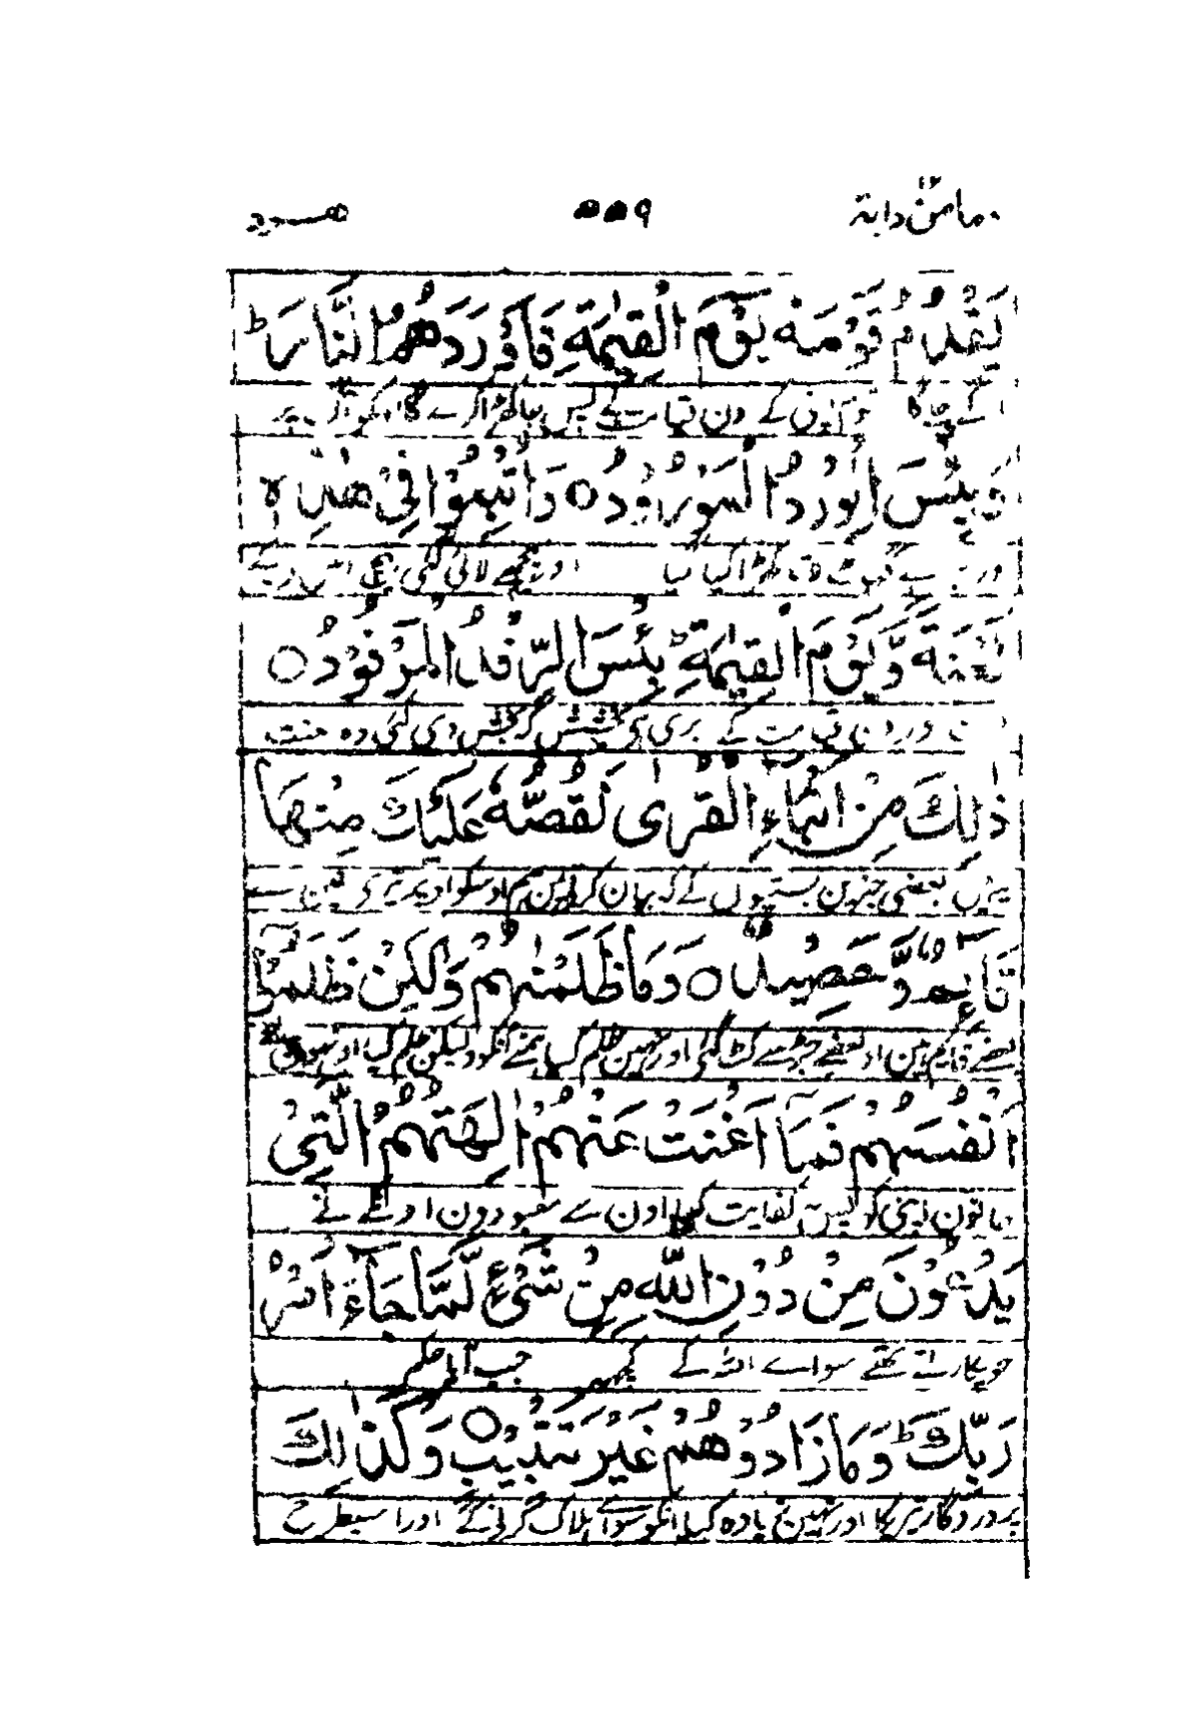 ومامن دابة ۱۲ ۵۵۹ هود
يَقْدُمُ قَوْمَهٗ يَوْمَ الْقِيٰمَةِ فَاَوْرَدَهُمُ النَّارَ ؕ
کے دن قیامت کے پس
وَبِئْسَ الْوِرْدُ الْمَوْرُوْدُ ○ وَاُتْبِعُوْا فِيْ هٰذِهٖ
اور پیچھے لائی گئی بیچ اس دنیا کے
لَعْنَةً وَّيَوْمَ الْقِيٰمَةِ ؕ بِئْسَ الرِّفْدُ الْمَرْفُوْدُ ○
اور دن قیامت کے بری ہی بخشش دی گئی وہ
ذٰلِكَ مِنْ اَنْۢبَآءِ الْقُرٰى نَقُصُّهٗ عَلَيْكَ مِنْهَا
بعضی خبرون بستیوں کے کہ بیان کرتے ہین ہم اوسکو اوپر تیرے بعضی ان مین سے
قَآئِمٌ وَّحَصِيْدٌ ○ وَمَا ظَلَمْنٰهُمْ وَلٰكِنْ ظَلَمُوْٓا
بعضے قائم ہین اور بعضے جڑ سے کٹ گئی اور نہین ظلم کیا ہمنے انکو ولیکن ظلم کیا اونہون نے
اَنْفُسَهُمْ فَمَآ اَغْنَتْ عَنْهُمْ اٰلِهَتُهُمُ الَّتِيْ
جانون اپنی کو پس نہ کفایت کیا اون سے معبودون اونکے نے
يَدْعُوْنَ مِنْ دُوْنِ اللّٰهِ مِنْ شَيْءٍ لَّمَّا جَآءَ اَمْرُ
جو پکارتے تھے سواے اللہ کے کچھہ جب آیا حکم
رَبِّكَ ؕ وَمَا زَادُوْهُمْ غَيْرَ تَتْبِيْبٍ ○ وَكَذٰلِكَ
پروردگار تیریکا اور نہین زیادہ کیا انکو سواے ہلاک کرنے کے اور اسیطرح